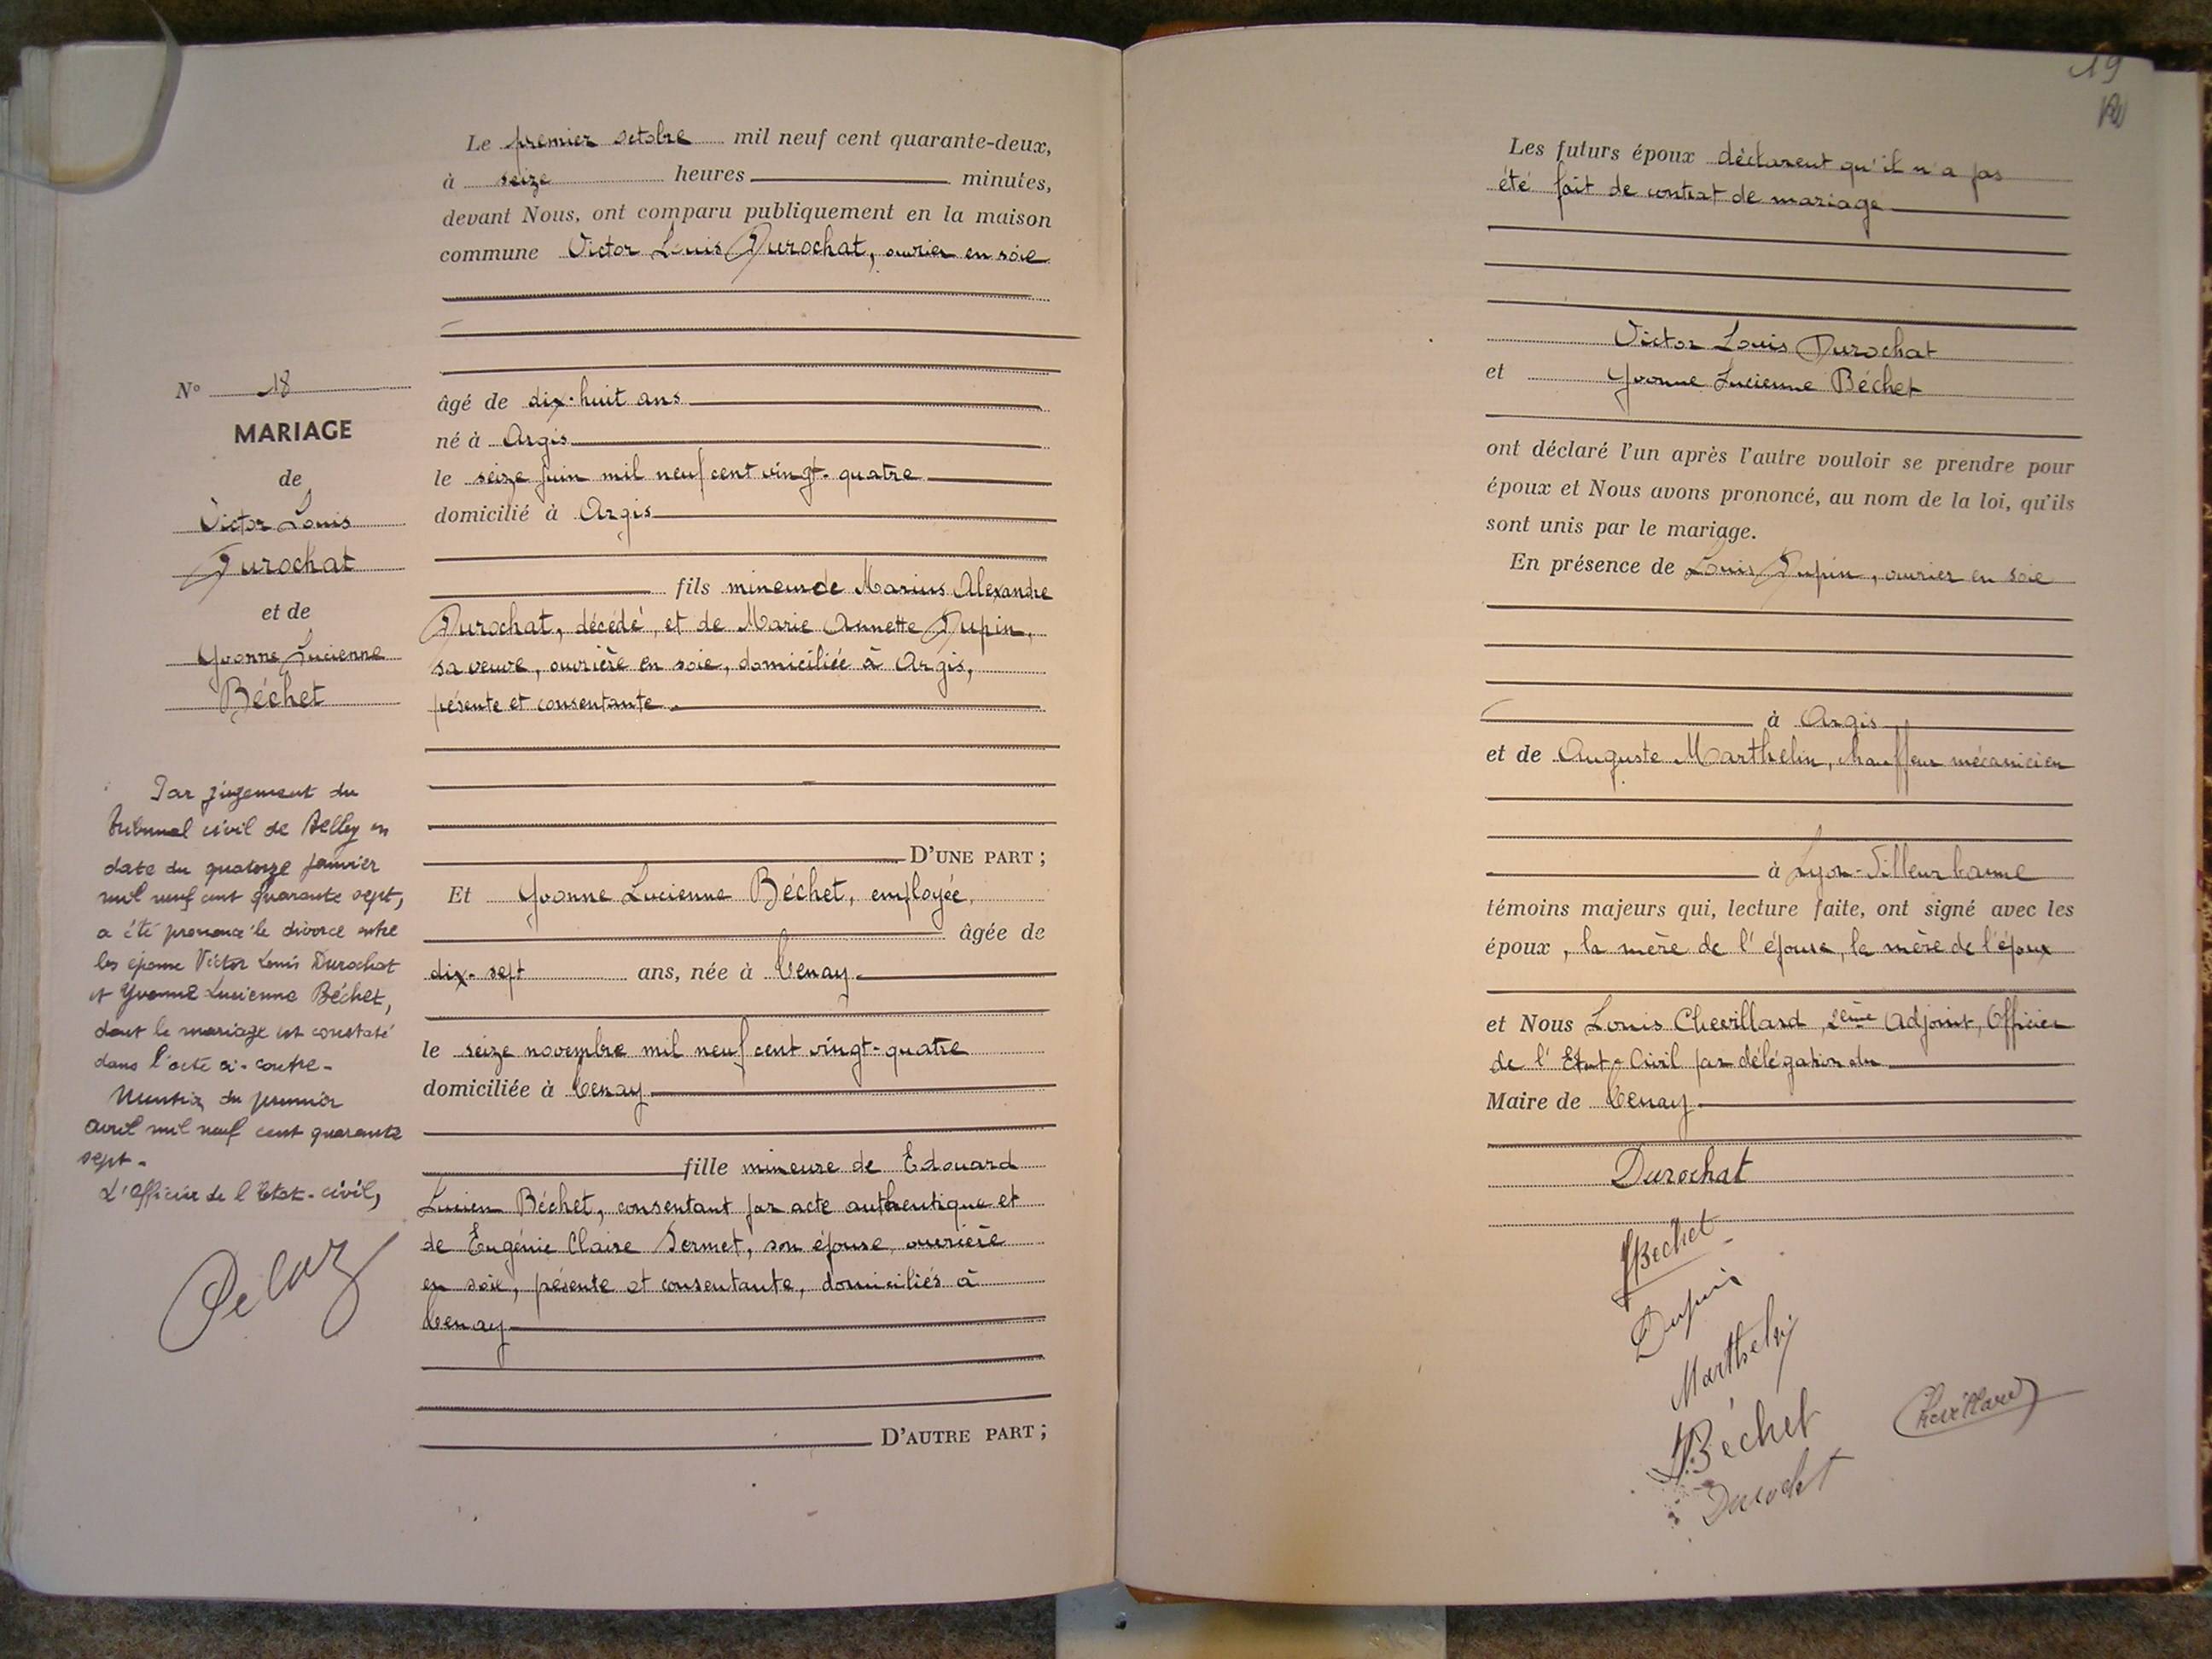 Le premier octobre mil neuf cent quarante-deux,
à seize heures minutes,
devant Nous, ont comparu publiquement en la maison
commune Victor Louis Durochat, ouvrier en soie
âgé de dix-huit ans
né à Argis
le seize juin mil neuf cent vingt-quatre
domicilié à Argis
fils mineur de Marius Alexandre
Durochat, décédé, et de Marie Annette Dupin,
sa veuve, ouvrière en soie, domiciliée à Argis,
présente et consentante.
D'UNE PART ;
Et Yvonne Lucienne Béchet, employée,
âgée de
dix-sept ans, née à Tenay
le seize novembre mil neuf cent vingt-quatre
domiciliée à Tenay
fille mineure de Edouard
Lucien Béchet, consentant par acte authentique et
de Eugénie Claire Sermet, son épouse, ouvrière
en soie, présente et consentante, domiciliés à
Tenay
D'AUTRE PART ;
N° 18
MARIAGE
de
Victor Louis
Durochat
et de
Yvonne Lucienne
Béchet
Par jugement du
tribunal civil de Belley en
date du quatorze janvier
mil neuf cent quarante sept,
a été prononcé le divorce entre
les époux Victor Louis Durochat
et Yvonne Lucienne Béchet,
dont le mariage est constaté
dans l'acte ci-contre.
Mention du premier
avril mil neuf cent quarante
sept.
L'Officier de l'Etat-civil,
19
Les futurs époux déclarent qu'il n'a pas
été fait de contrat de mariage
Victor Louis Durochat
et Yvonne Lucienne Béchet
ont déclaré l'un après l'autre vouloir se prendre pour
époux et Nous avons prononcé, au nom de la loi, qu'ils
sont unis par le mariage.
En présence de Louis Dupin, ouvrier en soie
à Argis
et de Auguste Marthelin, chauffeur mécanicien
à Lyon-Villeurbanne
témoins majeurs qui, lecture faite, ont signé avec les
époux, la mère de l'épouse, la mère de l'époux
et Nous Louis Chevillard, 2ème Adjoint, Officier
de l'Etat-Civil par délégation du
Maire de Tenay
Durochat
Béchet
Dupin
Marthelin
Béchet
Chevillard
Durochat